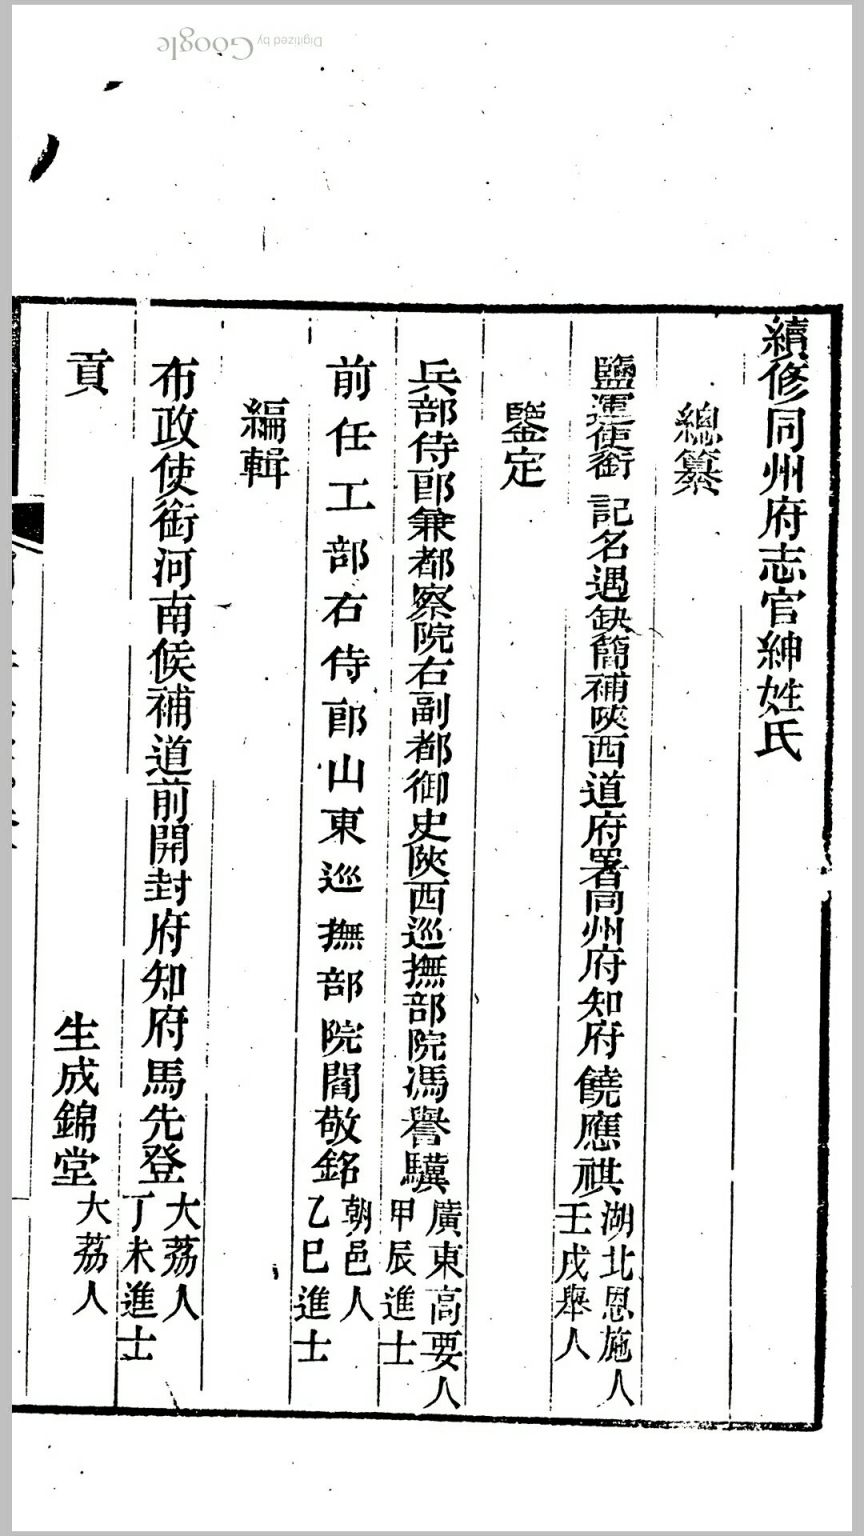 續修同州府志官紳姓氏
總纂
鹽運使銜 記名遇缺簡補陝西道府署同州府知府饒應祺 湖北恩施人 壬戌舉人
鑒定
兵部侍郎兼都察院右副都御史陝西巡撫部院馮譽驥 廣東高要人 甲辰進士
前任工部右侍郎山東巡撫部院閻敬銘 朝邑人 乙巳進士
編輯
布政使銜河南候補道前開封府知府馬先登 大荔人 丁未進士
貢生成錦堂 大荔人
Digitized by Google